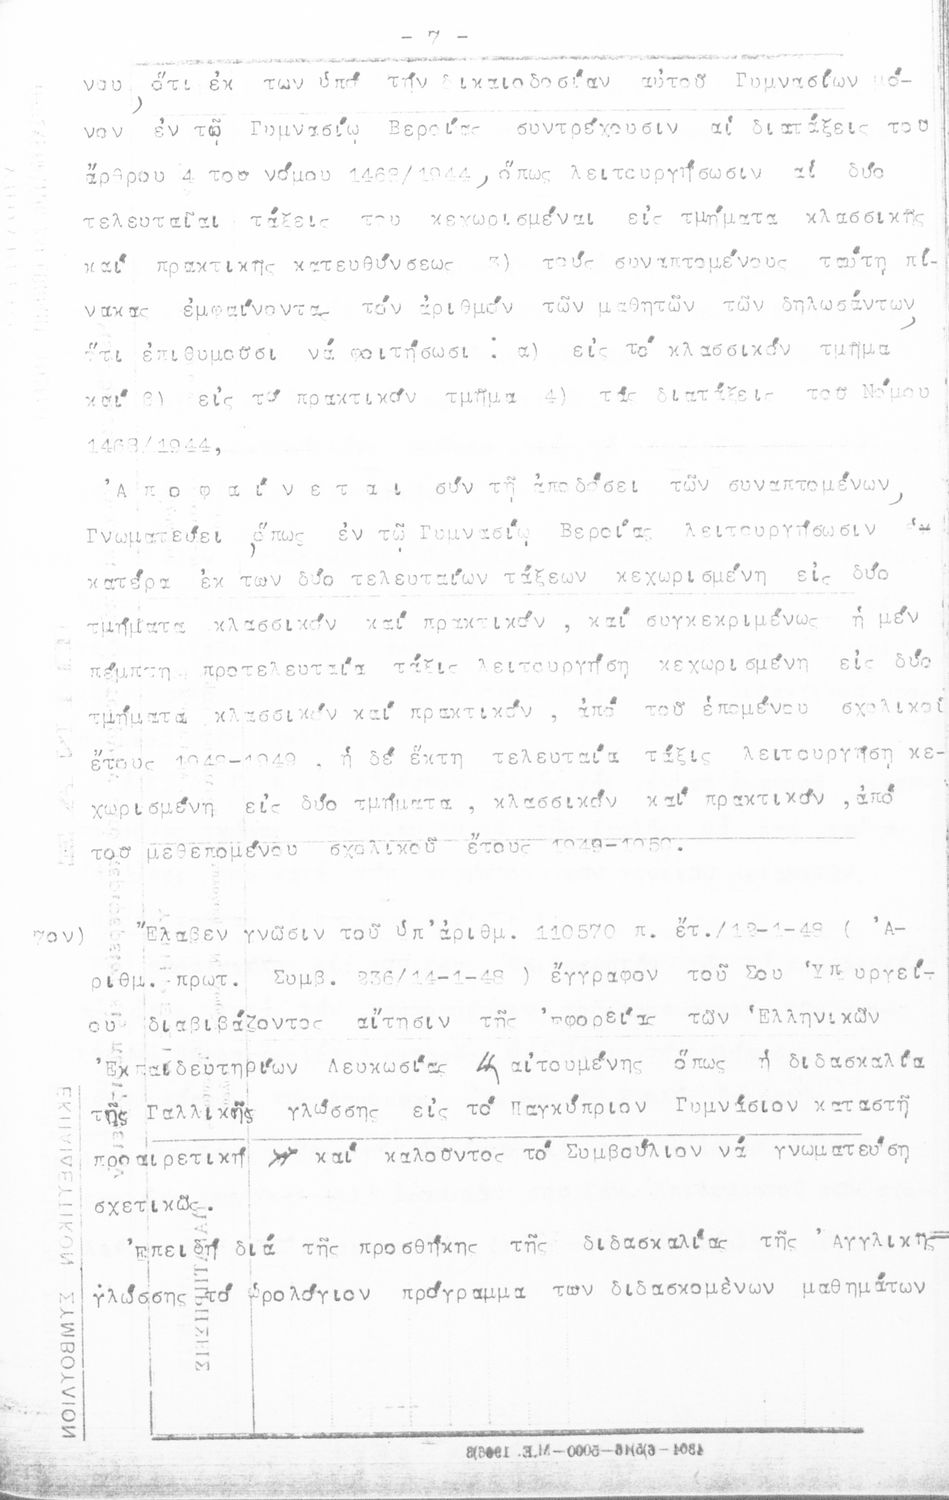 - 7 -
νου, ὅτι ἐκ των ὑπό τήν δικαιοδοσίαν αὐτοῦ Γυμνασίων μό-
νον ἐν τῷ Γυμνασίῳ Βεροίας συντρέχουσιν αἱ διατάξεις τοῦ
ἄρθρου 4 του νόμου 1468/1944, ὅπως λειτουργήσωσιν αἱ δύο
τελευταῖαι τάξεις του κεχωρισμέναι εἰς τμήματα κλασσικῆς
καί πρακτικῆς κατευθύνσεως 3) τούς συναπτομένους ταύτῃ πί-
νακας ἐμφαίνοντα τόν ἀριθμόν τῶν μαθητῶν τῶν δηλωσάντων,
ὅτι ἐπιθυμοῦσι νά φοιτήσωσι : α) εἰς τό κλασσικόν τμῆμα
καί β) εἰς τό πρακτικόν τμῆμα 4) τάς διατάξεις τοῦ Νόμου
1468/1944,
Ἀ π ο φ α ί ν ε τ α ι σύν τῇ ἀποδόσει τῶν συναπτομένων,
Γνωματεύει, ὅπως ἐν τῷ Γυμνασίῳ Βεροίας λειτουργήσωσιν ἑ-
κατέρα ἐκ των δύο τελευταίων τάξεων κεχωρισμένη εἰς δύο
τμήματα κλασσικόν καί πρακτικόν , καί συγκεκριμένως ἡ μέν
πέμπτη προτελευταία τάξις λειτουργήσῃ κεχωρισμένη εἰς δύο
τμήματα κλασσικόν καί πρακτικόν , ἀπό τοῦ ἑπομένου σχολικοῦ
ἔτους 1948-1949 , ἡ δέ ἕκτη τελευταία τάξις λειτουργήσῃ κε-
χωρισμένη εἰς δύο τμήματα , κλασσικόν καί πρακτικόν , ἀπό
τοῦ μεθεπομένου σχολικοῦ ἔτους 1949-1950.
7ον) Ἔλαβεν γνῶσιν τοῦ ὑπ' ἀριθμ. 110570 π. ἔτ./12-1-48 ( Ἀ-
ριθμ. πρωτ. Συμβ. 236/14-1-48 ) ἔγγραφον τοῦ Σου Ὑπουργεί-
ου διαβιβάζοντος αἴτησιν τῆς Ἐφορείας τῶν Ἑλληνικῶν
Ἐκπαιδευτηρίων Λευκωσίας αἰτουμένης ὅπως ἡ διδασκαλία
τῆς Γαλλικῆς γλώσσης εἰς τό Παγκύπριον Γυμνάσιον καταστῇ
προαιρετική καί καλοῦντος τό Συμβούλιον νά γνωματεύσῃ
σχετικῶς.
Ἐπειδή διά τῆς προσθήκης τῆς διδασκαλίας τῆς Ἀγγλικῆς
γλώσσης τό ὡρολόγιον πρόγραμμα των διδασκομένων μαθημάτων
ΕΚΠΑΙΔΕΥΤΙΚΟΝ ΣΥΜΒΟΥΛΙΟΝ